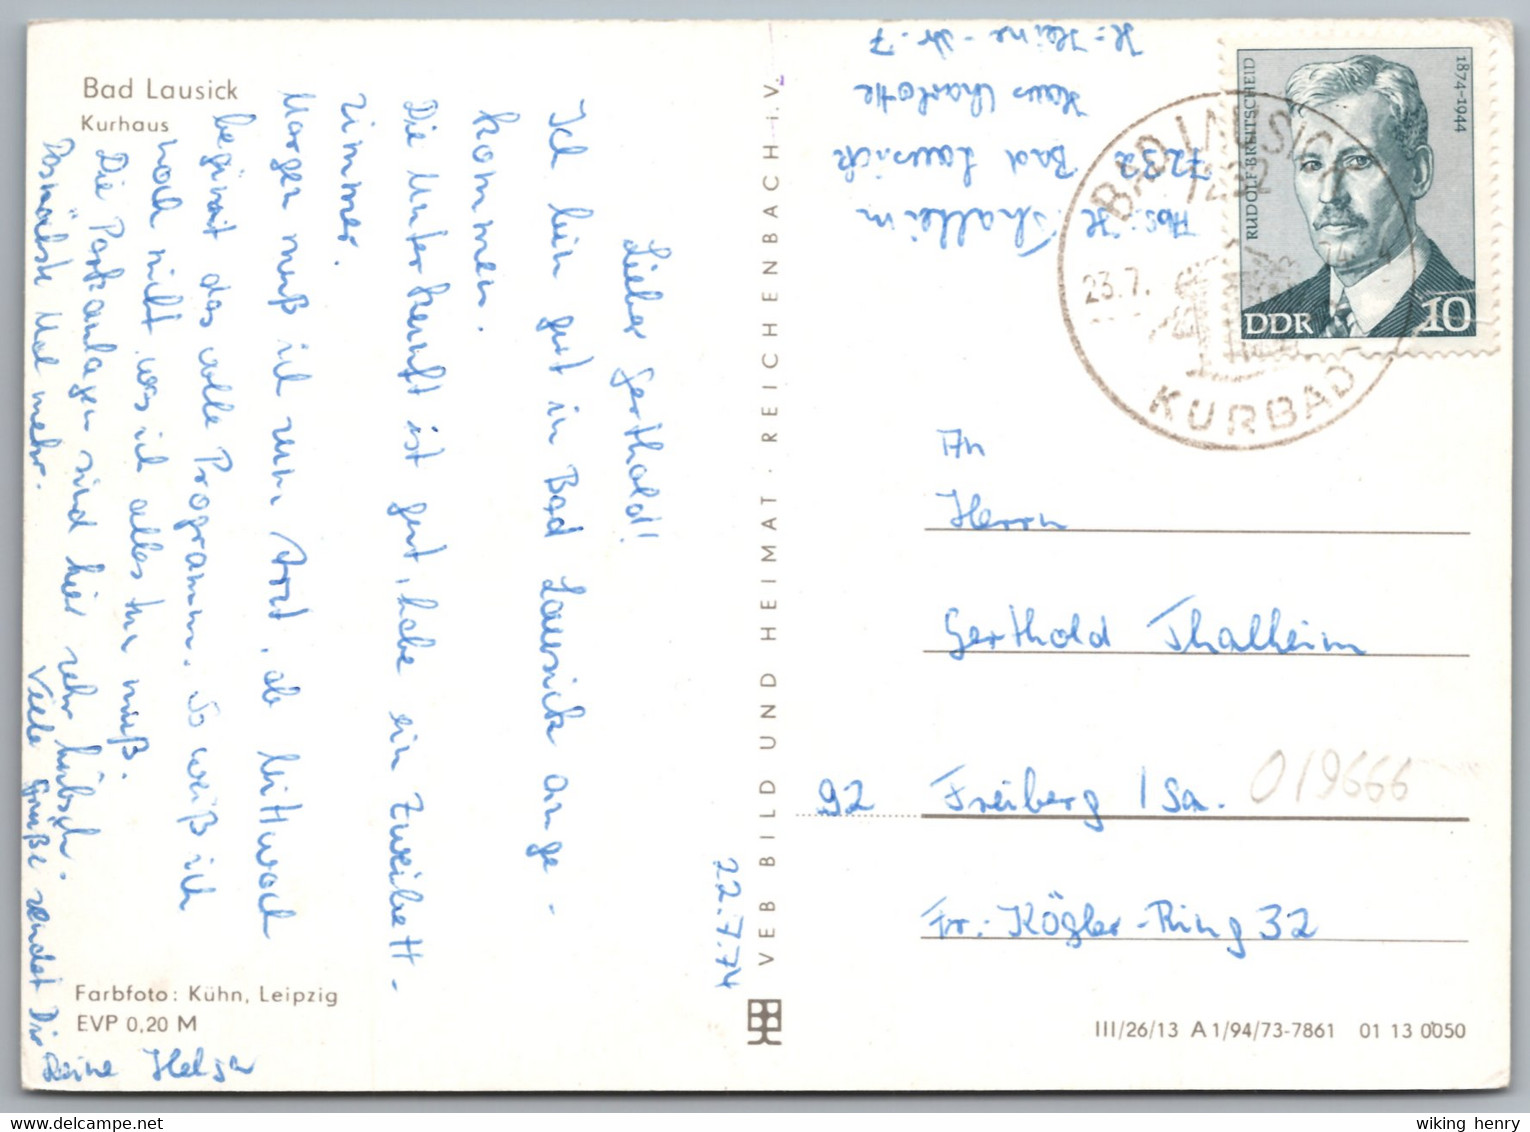 Bad Lausick
Kurhaus
22.7.74
Lieber Gerthold!
Ich bin gut in Bad Lausick ange-
kommen.
Die Unterkunft ist gut, habe ein Zweibett-
zimmer.
Morgen muß ich zum Arzt, ab Mittwoch
beginnt das volle Programm. So weiß ich
noch nicht was ich alles tun muß.
Die Parkanlagen sind hier sehr hübsch.
Demnächst Mal mehr.
Viele Grüße sendet Dir
Deine Helga
Farbfoto: Kühn, Leipzig
EVP 0,20 M
VEB BILD UND HEIMAT · REICHENBACH i. V.
Abs: H. Thalheim
7232 Bad Lausick
Haus Charlotte
H.-Heine-Str. 7
RUDOLF BREITSCHEID
1874-1944
DDR 10
BAD LAUSICK
7232
23.7.
KURBAD
An
Herrn
Gerthold Thalheim
92 Freiberg / Sa.
019666
Fr.-Kögler-Ring 32
III/26/13 A 1/94/73-7861 01 13 0050
wiking henry